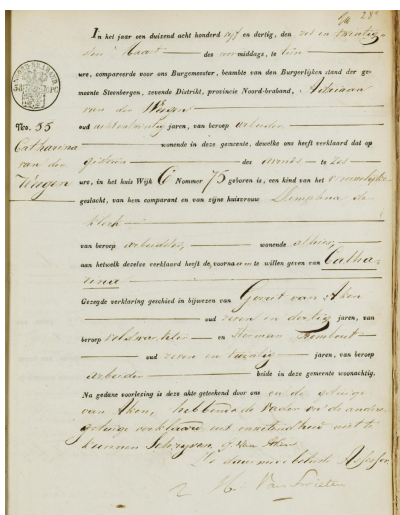 In het jaar een duizend acht honderd vijf en dertig, den zes en twintig-
sten Maart des voormiddags, te tien
ure, compareerde voor ons Burgemeester, beambte van den Burgerlijken stand der ge-
meente Steenbergen, zevende Distrikt, provincie Noord-braband, Adriaan
van der Wegen
Nro. 55
oud achtentwintig jaren, van beroep arbeider
Catharina
van der
Wegen
wonende in deze gemeente, dewelke ons heeft verklaard dat op
gisteren des avonds te zes
ure, in het huis Wijk G Nommer 75 geboren is, een kind van het vrouwelijke
geslacht, van hem comparant en van zijne huisvrouw Dimphna de
Klerk
van beroep arbeidster wonende alhier,
aan hetwelk dezelve verklaard heeft de voornamen te willen geven van Catha-
rina
Gezegde verklaring geschied in bijwezen van Govert van Aken
oud zeven en dertig jaren, van
beroep veldwachter en Herman
oud zeven en twintig jaren, van beroep
arbeider beide in deze gemeente woonachtig.
Na gedane voorlezing is deze akte geteekend door ons en de getuige
van Aken, hebbende de Vader en de andere
getuige verklaard uit onwetendheid niet te
kunnen Schrijven. G. van Aken
De daarmee belaste Assessor
Van